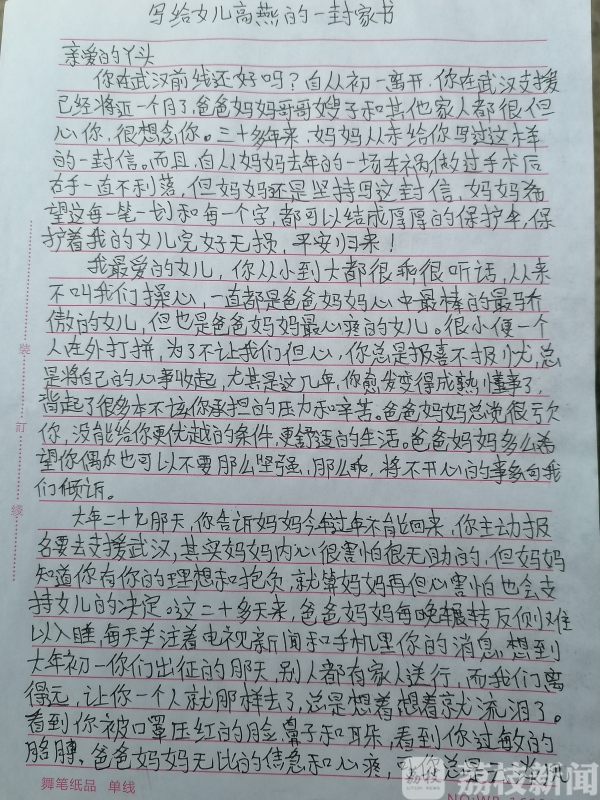 写给女儿高燕的一封家书
亲爱的丫头
你在武汉前线还好吗？自从初一离开，你在武汉支援
已经将近一个月了，爸爸妈妈哥哥嫂子和其他家人都很但
心你，很想念你。三十多年来，妈妈从未给你写过这样
的一封信。而且，自从妈妈去年的一场车祸，做过手术后
右手一直不利落，但妈妈还是坚持写这封信，妈妈希
望这每一笔一划和每一个字，都可以结成厚厚的保护伞，保
护着我的女儿完好无损，平安归来！
我最爱的女儿，你从小到大都很乖很听话，从来
不叫我们操心，一直都是爸爸妈妈心中最棒的最骄
傲的女儿，但也是爸爸妈妈最心疼的女儿。很小便一个
人在外打拼，为了不让我们但心，你总是报喜不报忧，总
是将自己的心事收起，尤其是这几年，你愈发变得成熟懂事了，
背起了很多本不该你承担的压力和辛苦。爸爸妈妈总说很亏欠
你，没能给你更优越的条件，更舒适的生活。爸爸妈妈多么希
望你偶尔也可以不要那么坚强，那么乖，将不开心的事多向我
们倾诉。
大年二十九那天，你告诉妈妈今年过年不能回来，你主动报
名要去支援武汉，其实妈妈内心很害怕很无助的，但妈妈
知道你有你的理想和抱负，就算妈妈再但心害怕也会支
持女儿的决定。这二十多天来，爸爸妈妈每晚辗转反侧难
以入睡，每天关注着电视新闻和手机里你的消息，想到
大年初一你们出征的那天，别人都有家人送行，而我们离
得远，让你一个人就那样去了，总是想着想着就流泪了。
看到你被口罩压红的脸、鼻子和耳朵，看到你过敏的
胳膊，爸爸妈妈无比的焦急和心疼，可你总是
装
订
线
舞笔纸品 单线
荔枝新闻